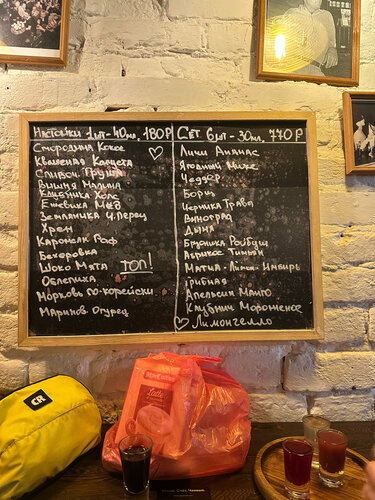 Настойки 1шт-40мл, 180Р
Смородина Кокос
Квашеная Капуста
Сливоч. Груша
Вишня Малина
Клубника Холс
Ежевика Мёд
Земляника Ч.Перец
Хрен
Карамель Раф
Бехеровка
Шоко Мята ТОП!
Облепиха
Морковь по-корейски
Маринов. Огурец
Сет 6шт-30мл, 770Р
Личи Ананас
Ягодный Микс
Чеддер
Борщ
Черника Трава
Виноград
Дыня
Брусника Ройбуш
Абрикос Тимьян
Матча-Лайм-Имбирь
Грибная
Апельсин Манго
Клубнич Мороженое
Лимончелло
CR
Latte